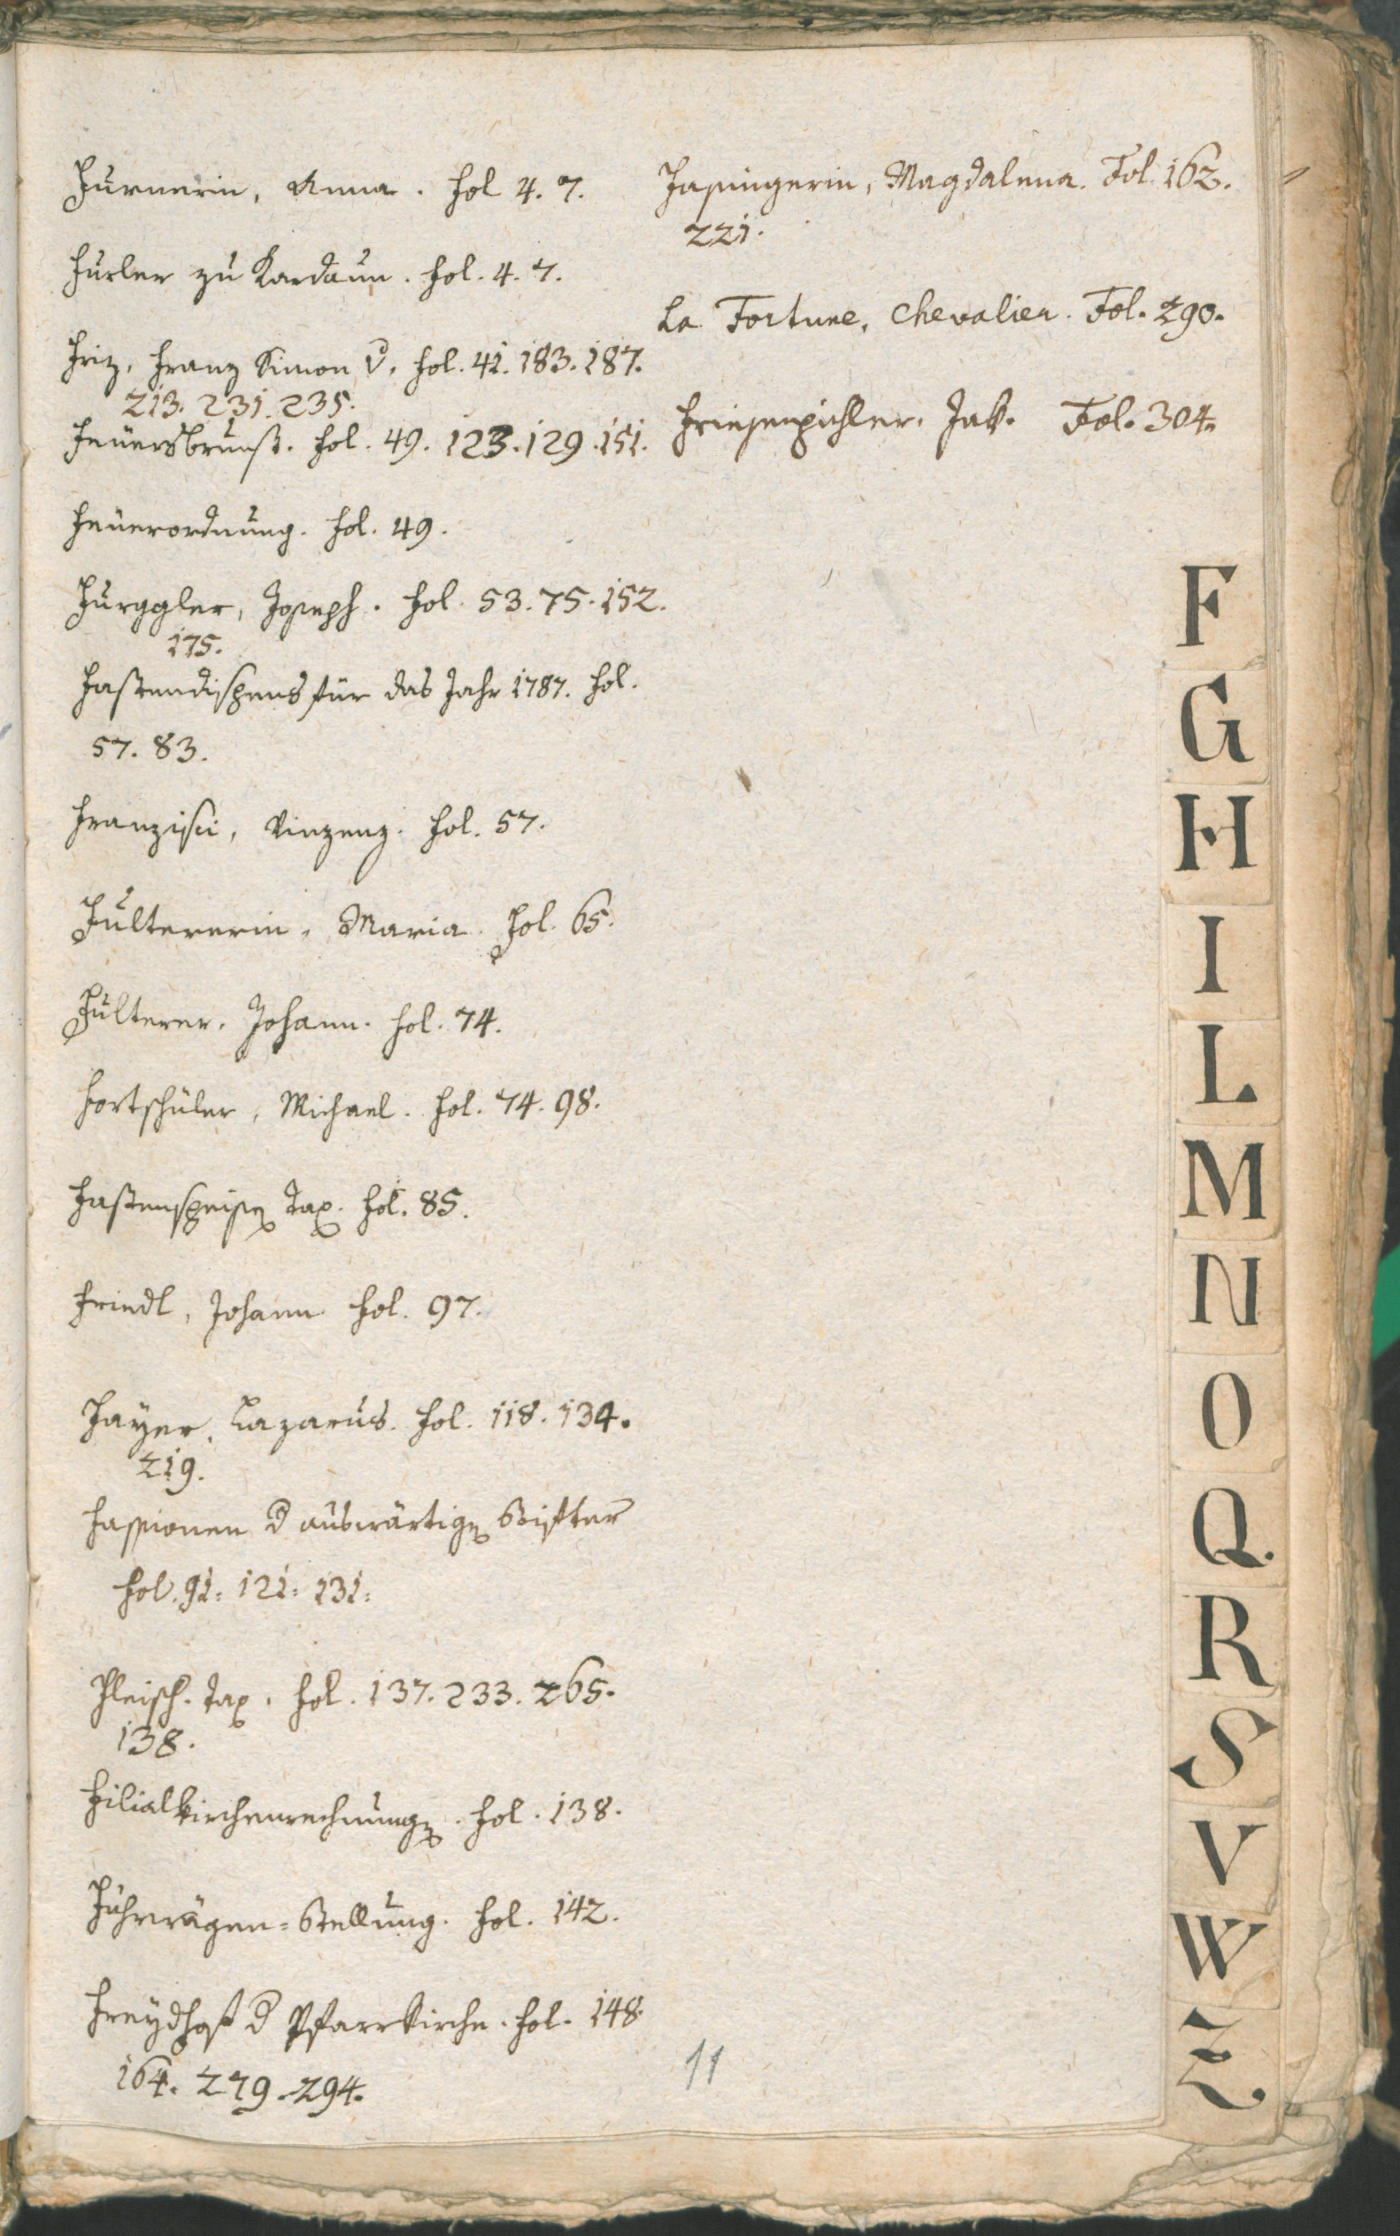 Furnerin, Anna. Fol 4. 7.
Furler zu Kardaun. Fol. 4. 7.
Friz, Franz Simon v. Fol. 41. 183. 187.
213. 231. 235.
Feuersbrunst. Fol. 49. 123. 129. 151.
Feuerordnung. Fol. 49.
Furggler, Joseph. Fol. 53. 75. 152.
175.
Fastendispens für das Jahr 1787. Fol.
57. 83.
Franzisci, Vinzenz. Fol. 57.
Fultererin, Maria. Fol. 65.
Fulterer, Johann. Fol. 74.
Fortschüler, Michael. Fol. 74. 98.
Fastenspeisen Tax. Fol. 85.
Friedl, Johann Fol. 97.
Fayer, Lazarus. Fol. 118. 134.
219.
Fassionen d auswärtigen Stifter
Fol. 91. 121. 131.
Fleisch-Tax. Fol. 137. 233. 265.
138.
Filialkirchenrechnungen. Fol. 138.
Fuhrwägen-Stellung. Fol. 142.
Freydhof d Pfarrkirche. Fol. 148.
164. 279. 294.
Fasingerin, Magdalena. Fol. 162.
221.
La Fortune, Chevalier. Fol. 290.
Friesenpichler, Jak. Fol. 304.
F
G
H
I
L
M
N
O
Q.
R
S
V
W
Z
11